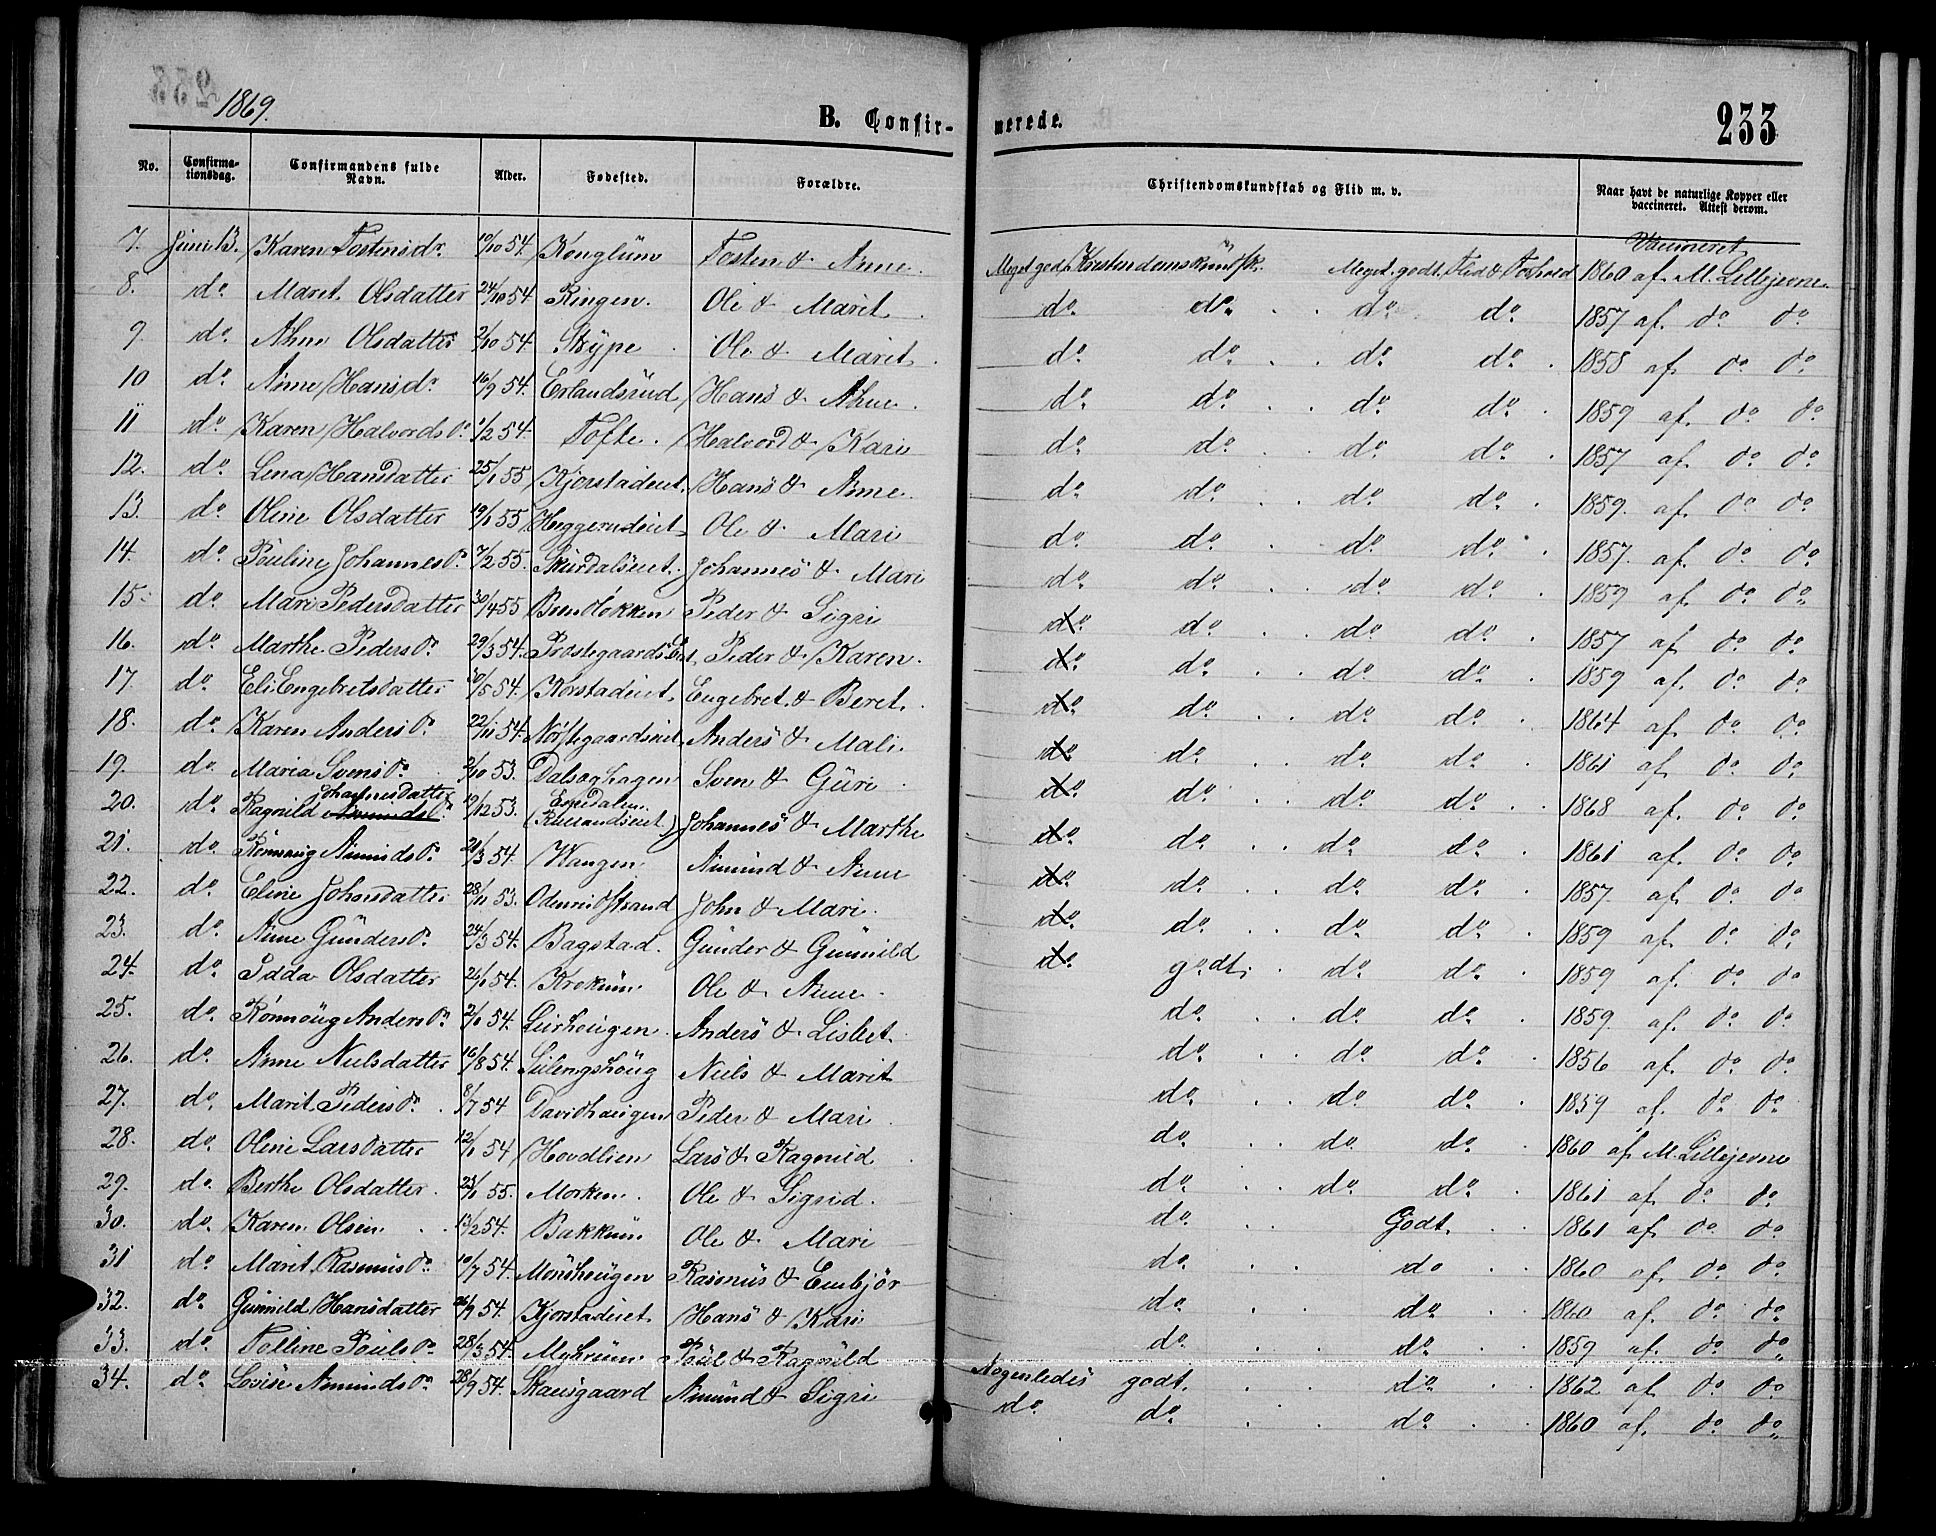 1869.
B. Confir-
merede.
233
No. Confirma-tionsdag. Confirmandens fulde Navn. Alder. Fødested. Forældre. Christendomskundskab og Flid m. v. Naar havt de naturlige Kopper eller vaccineret. Attest derom.
7. Juni 13. Karen Tostensdr. 10/10 54. Konglum Tosten & Anne. Meget god Kristendomskundsk. Meget godt Flid & Forhold 1860 af M. Lillejevne.
8. do. Marit Olsdatter 24/10 54 Ringen. Ole & Marit. do. do. do. do. 1857 af. do. do.
9. do. Ahne Olsdatter 2/10 54. Skype Ole & Marit. do. do. do. do. 1858 af. do. do.
10 do. Anne Hansdr. 16/9 54. Erlandsrud Hans & Ahne. do. do. do. do. 1859 af. do. do.
11 do. Karen Halvordsdr. 1/2 54. Tofte. Halvord & Kari do. do. do. do. 1857 af. do. do.
12. do. Lena Hansdatter 25/1 55 Kjorstadeiet. Hans & Anne. do. do. do. do. 1859. af. do. do.
13. do. Oline Olsdatter 19/1 55 Heggerudeiet Ole & Mari do. do. do. do. 1857. af. do. do.
14. do. Pauline Johannesdr. 7/2 55. Skurdalseiet. Johannes & Mari do. do. do. do. 1859 af. do. do.
15. do. Mari Pedersdatter 30/4 55 Bredløkken Peder & Sigri do. do. do. do. 1857 af. do. do.
16. do. Marthe Pedersdr. 29/3 54. Prostegaardseiet. Peder & Karen. do. do. do. do. 1859 af. do. do.
17. do. Eli Engebretsdatter 30/5 54. Korstadeiet. Engebret & Beret. do. do. do. do. 1864 af. do. do.
18. do. Karen Andersdr. 22/11 54. Nøistegaardseiet Anders & Mali. do. do. do. do. 1861 af. do. do.
19. do. Maria Svensdr. 2/10 53. Dalsoghagen Sven & Guri do. do. do. do. 1868 af. do. do.
20. do. Ragnild Johannesdatter 19/12 53. Espedalen Johannes & Marthe do. do. do. do. 1861 af. do. do.
21. do. Rønnaug Amundsdr. 21/3 54. Wangen Amund & Anne do. do. do. do. 1857. af. do. do.
22. do. Eline Johnsdatter 28/11 53. Odenrudstrand John & Mari. do. do. do. do. 1859 af. do. do.
23. do. Anne Gundersdr. 24/3 54. Bagstad. Gunder & Gunnild do. godt. do. do. 1859 af. do. do.
24. do. Idda Olsdatter 26/1 54. Krokum Ole & Anne. do. do. do. 1859. af. do. do.
25. do. Rønnoug Andersdr. 2/1 54. Leirhougen. Anders & Lisbet. do. do. do. 1856 af. do. do.
26. do. Anne Nielsdatter 16/8 54. Lilengshoug Niels & Marit do. do. do. 1859 af. do. do.
27. do. Marit Pedersdr. 8/7 54 Davidhaugen Peder & Mari do. do. do. 1860 af M. Lillejevne
28. do. Oline Larsdatter 12/1 54 Hovdlien Lars & Ragnild do. do. do. 1861 af do. do.
29. do. Berthe Olsdatter. 23/1 55. Morken. Ole & Sigrid. do. Godt. 1861 af do. do.
30. do. Karen Olsen 13/2 54. Bakkum Ole & Mari do. do 1860 af. do. do.
31 do. Marit Rasmusdr. 10/7 54. Monshougen Rasmus & Embjør do. do. 1860 af. do. do.
32. do. Gunnild Hansdatter 26/9 54. Kjorstadeiet Hans & Kari do. do. 1859 af. do. do.
33. do. Polline Poulsdr. 28/3 54. Myhrum Poul & Ragnild Nogenledes godt. do. 1862 af do. do.
34. do. Lovise Amundsdr. 28/9 54. Skausgaard Amund & Sigri do. do. do. 1860 af. do. do.